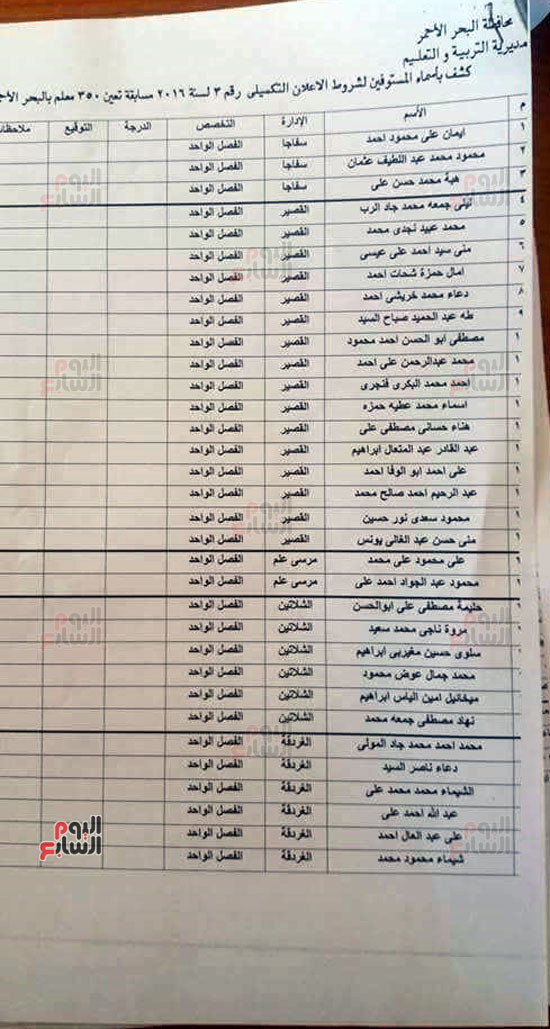 محافظة البحر الأحمر
مديرية التربية والتعليم
كشف بأسماء المستوفين لشروط الاعلان التكميلى رقم ٣ لسنة ٢٠١٦ مسابقة تعين ٣٥٠ معلم بالبحر الأحمر
م الأسم الإدارة التخصص الدرجة التوقيع ملاحظات
١ ايمان على محمود احمد سفاجا الفصل الواحد
٢ محمود محمد عبد اللطيف عثمان سفاجا الفصل الواحد
٣ هبة محمد حسن على سفاجا الفصل الواحد
٤ ليلى جمعه محمد جاد الرب القصير الفصل الواحد
٥ محمد عبيد نجدى محمد القصير الفصل الواحد
٦ منى سيد احمد على عيسى القصير الفصل الواحد
٧ امال حمزة شحات احمد القصير الفصل الواحد
٨ دعاء محمد خريشى احمد القصير الفصل الواحد
٩ طه عبد الحميد صباح السيد القصير الفصل الواحد
١ مصطفى ابو الحسن احمد محمود القصير الفصل الواحد
١ محمد عبدالرحمن على احمد القصير الفصل الواحد
١ احمد محمد البكرى فنجرى القصير الفصل الواحد
١ اسماء محمد عطيه حمزه القصير الفصل الواحد
١ هناء حسانى مصطفى على القصير الفصل الواحد
١ عبد القادر عبد المتعال ابراهيم القصير الفصل الواحد
١ على احمد ابو الوفا احمد القصير الفصل الواحد
١ عبد الرحيم احمد صالح محمد القصير الفصل الواحد
١ محمود سعدى نور حسين القصير الفصل الواحد
١ منى حسن عبد الغالى يونس القصير الفصل الواحد
على محمود على محمد مرسى علم الفصل الواحد
محمود عبد الجواد احمد على مرسى علم الفصل الواحد
حليمة مصطفى على ابوالحسن الشلاتين الفصل الواحد
مروة ناجى محمد سعيد الشلاتين الفصل الواحد
سلوى حسين مغيربى ابراهيم الشلاتين الفصل الواحد
محمد جمال عوض محمود الشلاتين الفصل الواحد
ميخائيل امين الياس ابراهيم الشلاتين الفصل الواحد
نهاد مصطفى جمعه محمد الشلاتين الفصل الواحد
محمد احمد محمد جاد المولى الغردقة الفصل الواحد
دعاء ناصر السيد الغردقة الفصل الواحد
الشيماء محمد محمد على الغردقة الفصل الواحد
عبد الله احمد على الغردقة الفصل الواحد
على عبد العال احمد الغردقة الفصل الواحد
شيماء محمود محمد الغردقة الفصل الواحد
اليوم السابع